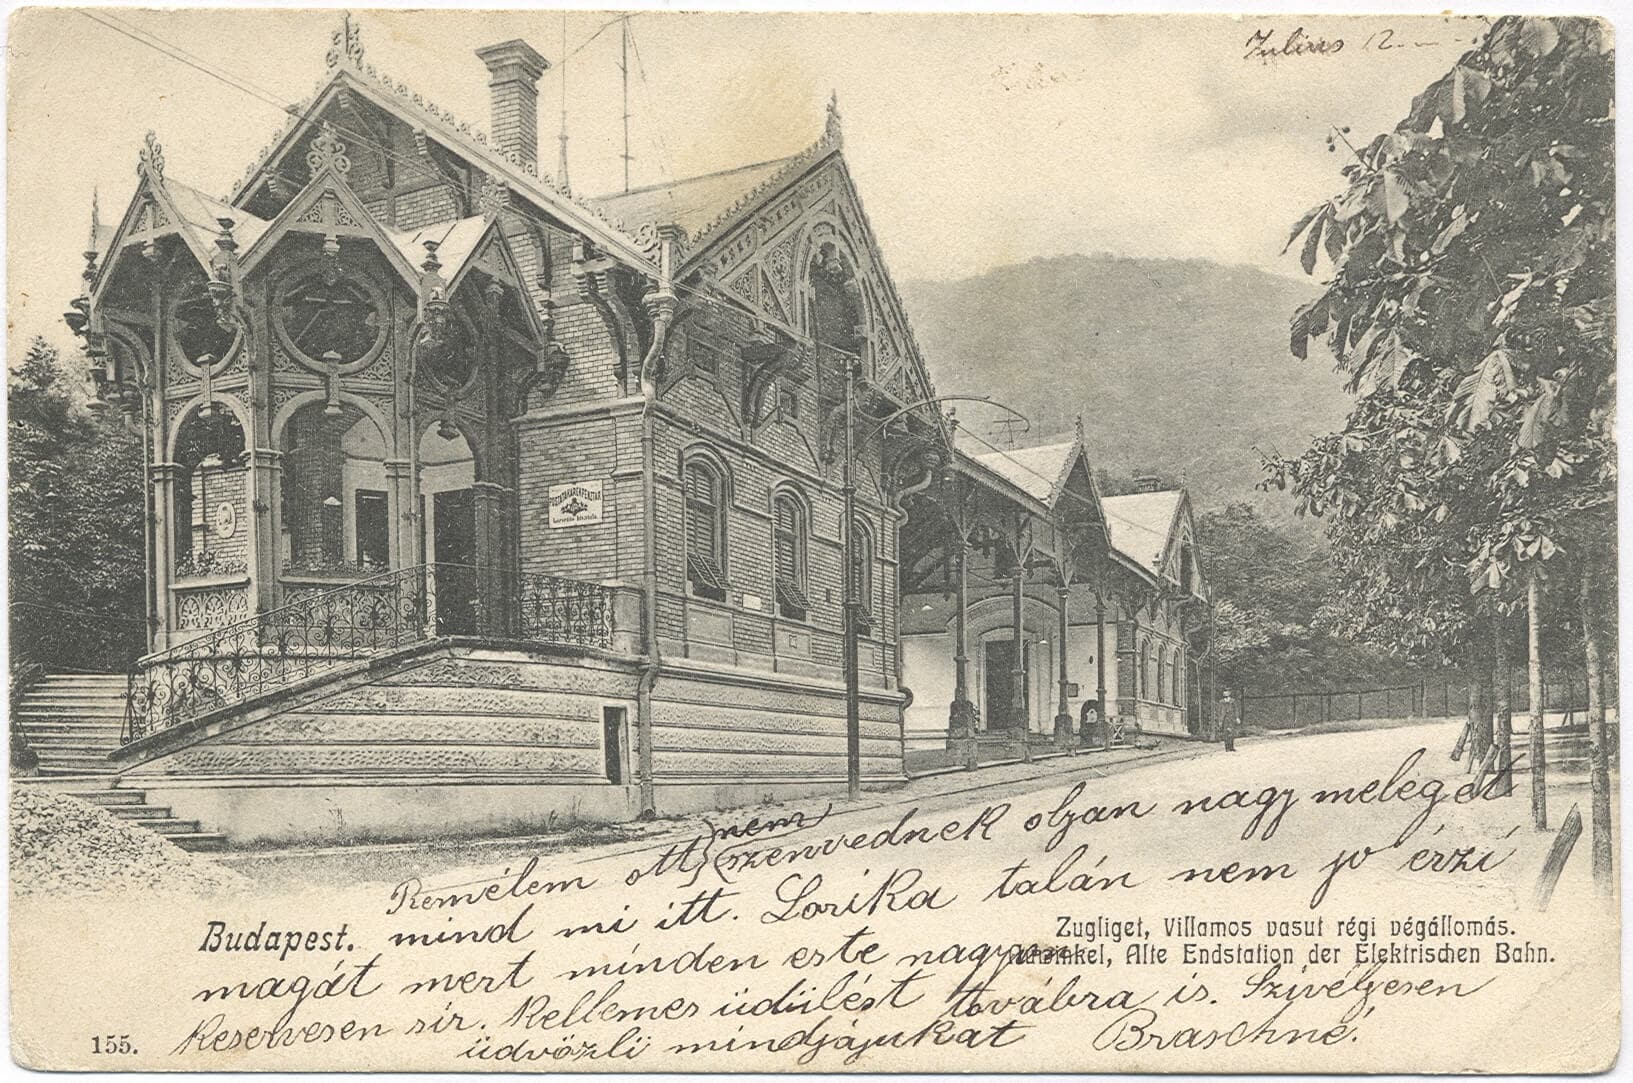 Julius 12.
POSTATAKARÉKPÉNZTÁR
nem
Remélem ott szenvednek olyan nagy meleget
mind mi itt. Lorika talán nem jo érzi
magát mert minden este nagyon
keservesen sír. Kellemes üdülést továbra is. Szivélyesen
üdvözli mindjájukat Braschné.
Budapest.
Zugliget, Villamos vasut régi végállomás.
Auwinkel, Alte Endstation der Elektrischen Bahn.
155.